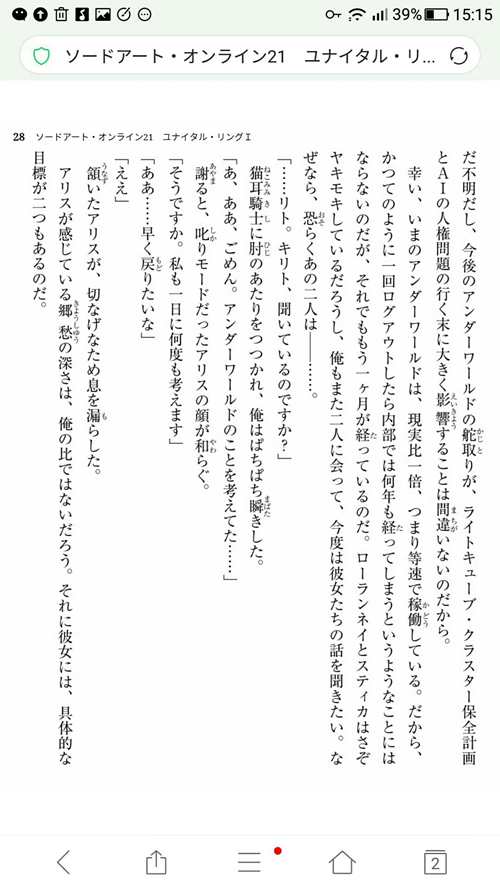 39% 15:15
ソードアート・オンライン21　ユナイタル・リ...
28 ソードアート・オンライン21　ユナイタル・リングⅠ
だ不明だし、今後のアンダーワールドの舵取りが、ライトキューブ・クラスター保全計画
とＡＩの人権問題の行く末に大きく影響することは間違いないのだから。
幸い、いまのアンダーワールドは、現実比一倍、つまり等速で稼働している。だから、
かつてのように一回ログアウトしたら内部では何年も経ってしまうというようなことには
ならないのだが、それでももう一ヶ月が経っているのだ。ローランネイとスティカはさぞ
ヤキモキしているだろうし、俺もまた二人に会って、今度は彼女たちの話を聞きたい。な
ぜなら、恐らくあの二人は――……。
「……リト。キリト、聞いているのですか？」
猫耳騎士に肘のあたりをつつかれ、俺はぱちぱち瞬きした。
「あ、ああ、ごめん。アンダーワールドのことを考えてた……」
謝ると、叱りモードだったアリスの顔が和らぐ。
「そうですか。私も一日に何度も考えます」
「ああ……早く戻りたいな」
「ええ」
頷いたアリスが、切なげなため息を漏らした。
アリスが感じている郷愁の深さは、俺の比ではないだろう。それに彼女には、具体的な
目標が二つもあるのだ。
2